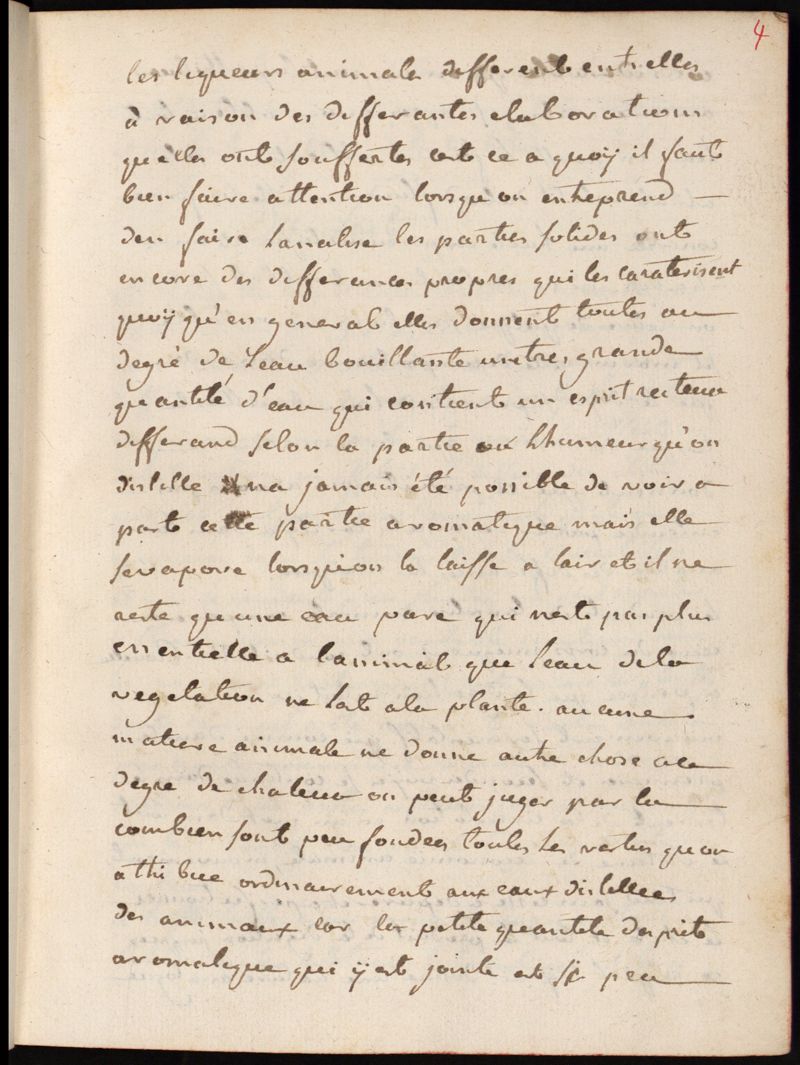 4
les liqueurs animals different entrelles
à raison des differantes elaborations
quelles onts souffertes cest ce a quoÿ il faut
bien faire attention lorsqu on entreprend —
den faire Lanalise les parties solides ont
encore des differances propres qui les caraterisent
quoÿ qu'en general elles donnent toutes au
degré de Leau bouillante une tres grande
quantité d'eau qui contient un esprit recteur
differand selon la partie ou Lhumeur qu'on
distille na jamais été possible de voir a
part cette partie aromatique mais elle
sevapore lorsqu'on la laisse a lair et il ne
reste quune eau pure qui nest pas plus
essentielle a lanimal que Leau dela
vegetation ne Lat ala plante. aucune
matiere animale ne donne autre chose ace
degre de chaleur on peut juger par la
combien sont peu fondees toutes les vertus quon
atribue ordinairement aux eaux distillees
des animaux car la petite quantite desprit
aromatique qui ÿ est jointe est si peu